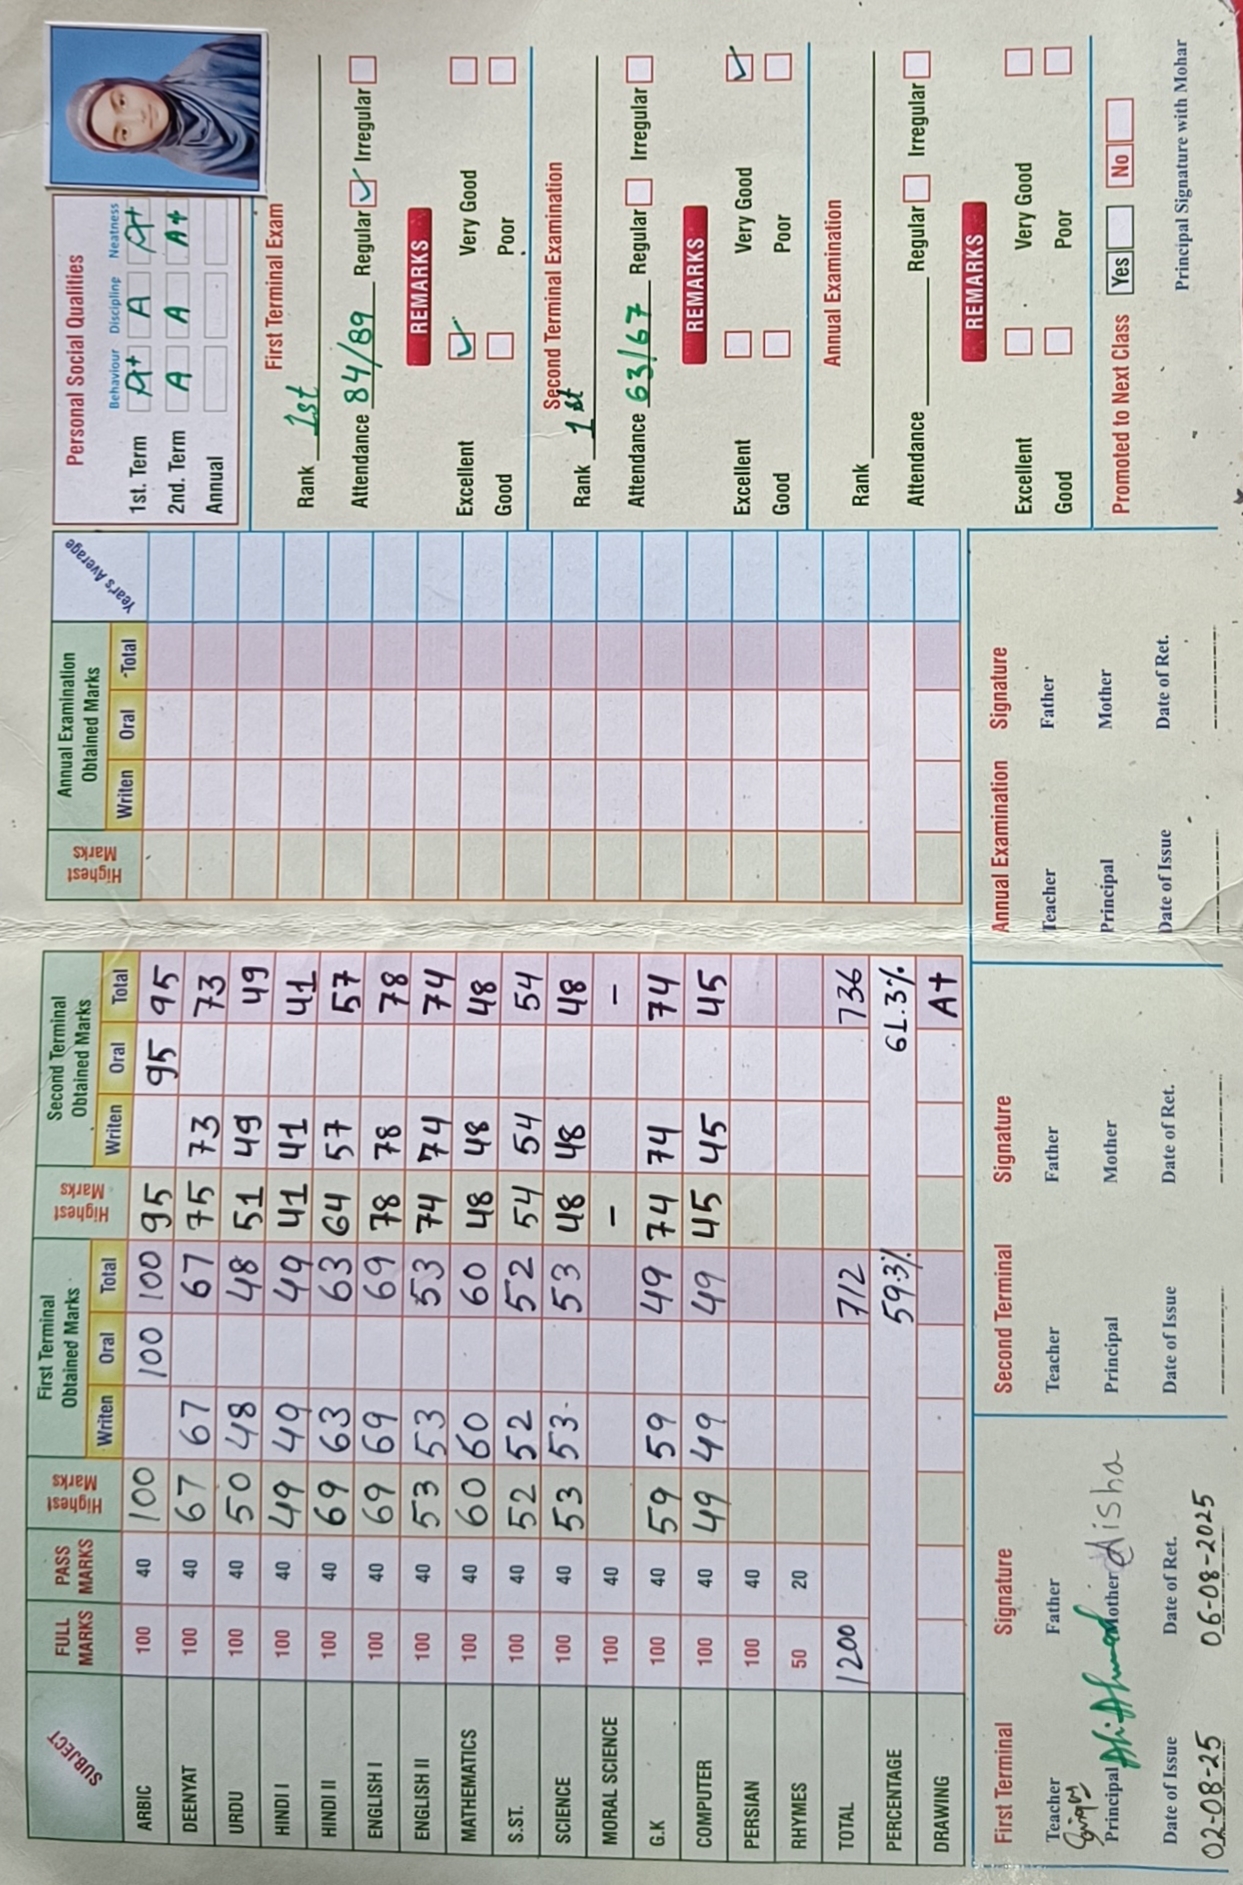 SUBJECT FULL MARKS PASS MARKS Highest Marks First Terminal Obtained Marks Highest Marks Second Terminal Obtained Marks
Writen Oral Total Writen Oral Total
ARBIC 100 40 100 100 100 95 95 95
DEENYAT 100 40 67 67 67 75 73 73
URDU 100 40 50 48 48 51 49 49
HINDI I 100 40 49 49 49 41 41 41
HINDI II 100 40 69 63 63 64 57 57
ENGLISH I 100 40 69 69 69 78 78 78
ENGLISH II 100 40 53 53 53 74 74 74
MATHEMATICS 100 40 60 60 60 48 48 48
S.ST. 100 40 52 52 52 54 54 54
SCIENCE 100 40 53 53 53 48 48 48
MORAL SCIENCE 100 40 - -
G.K 100 40 59 59 49 74 74 74
COMPUTER 100 40 49 49 49 45 45 45
PERSIAN 100 40
RHYMES 50 20
TOTAL 1200 712 736
PERCENTAGE 59.3% 61.3%
DRAWING A+
First Terminal Signature
Teacher Father
Principal Mother Aisha
Date of Issue Date of Ret.
02-08-25 06-08-2025
Second Terminal Signature
Teacher Father
Principal Mother
Date of Issue Date of Ret.
Highest Marks Annual Examination Obtained Marks Year's Average
Writen Oral Total
Annual Examination Signature
Teacher Father
Principal Mother
Date of Issue Date of Ret.
Personal Social Qualities
Behaviour Discipling Neatness
1st. Term A+ A A+
2nd. Term A A A+
Annual
First Terminal Exam
Rank 1st
Attendance 84/89 Regular Irregular
REMARKS
Excellent Very Good
Good Poor
Second Terminal Examination
Rank 1st
Attendance 63/67 Regular Irregular
REMARKS
Excellent Very Good
Good Poor
Annual Examination
Rank
Attendance Regular Irregular
REMARKS
Excellent Very Good
Good Poor
Promoted to Next Class Yes No
Principal Signature with Mohar